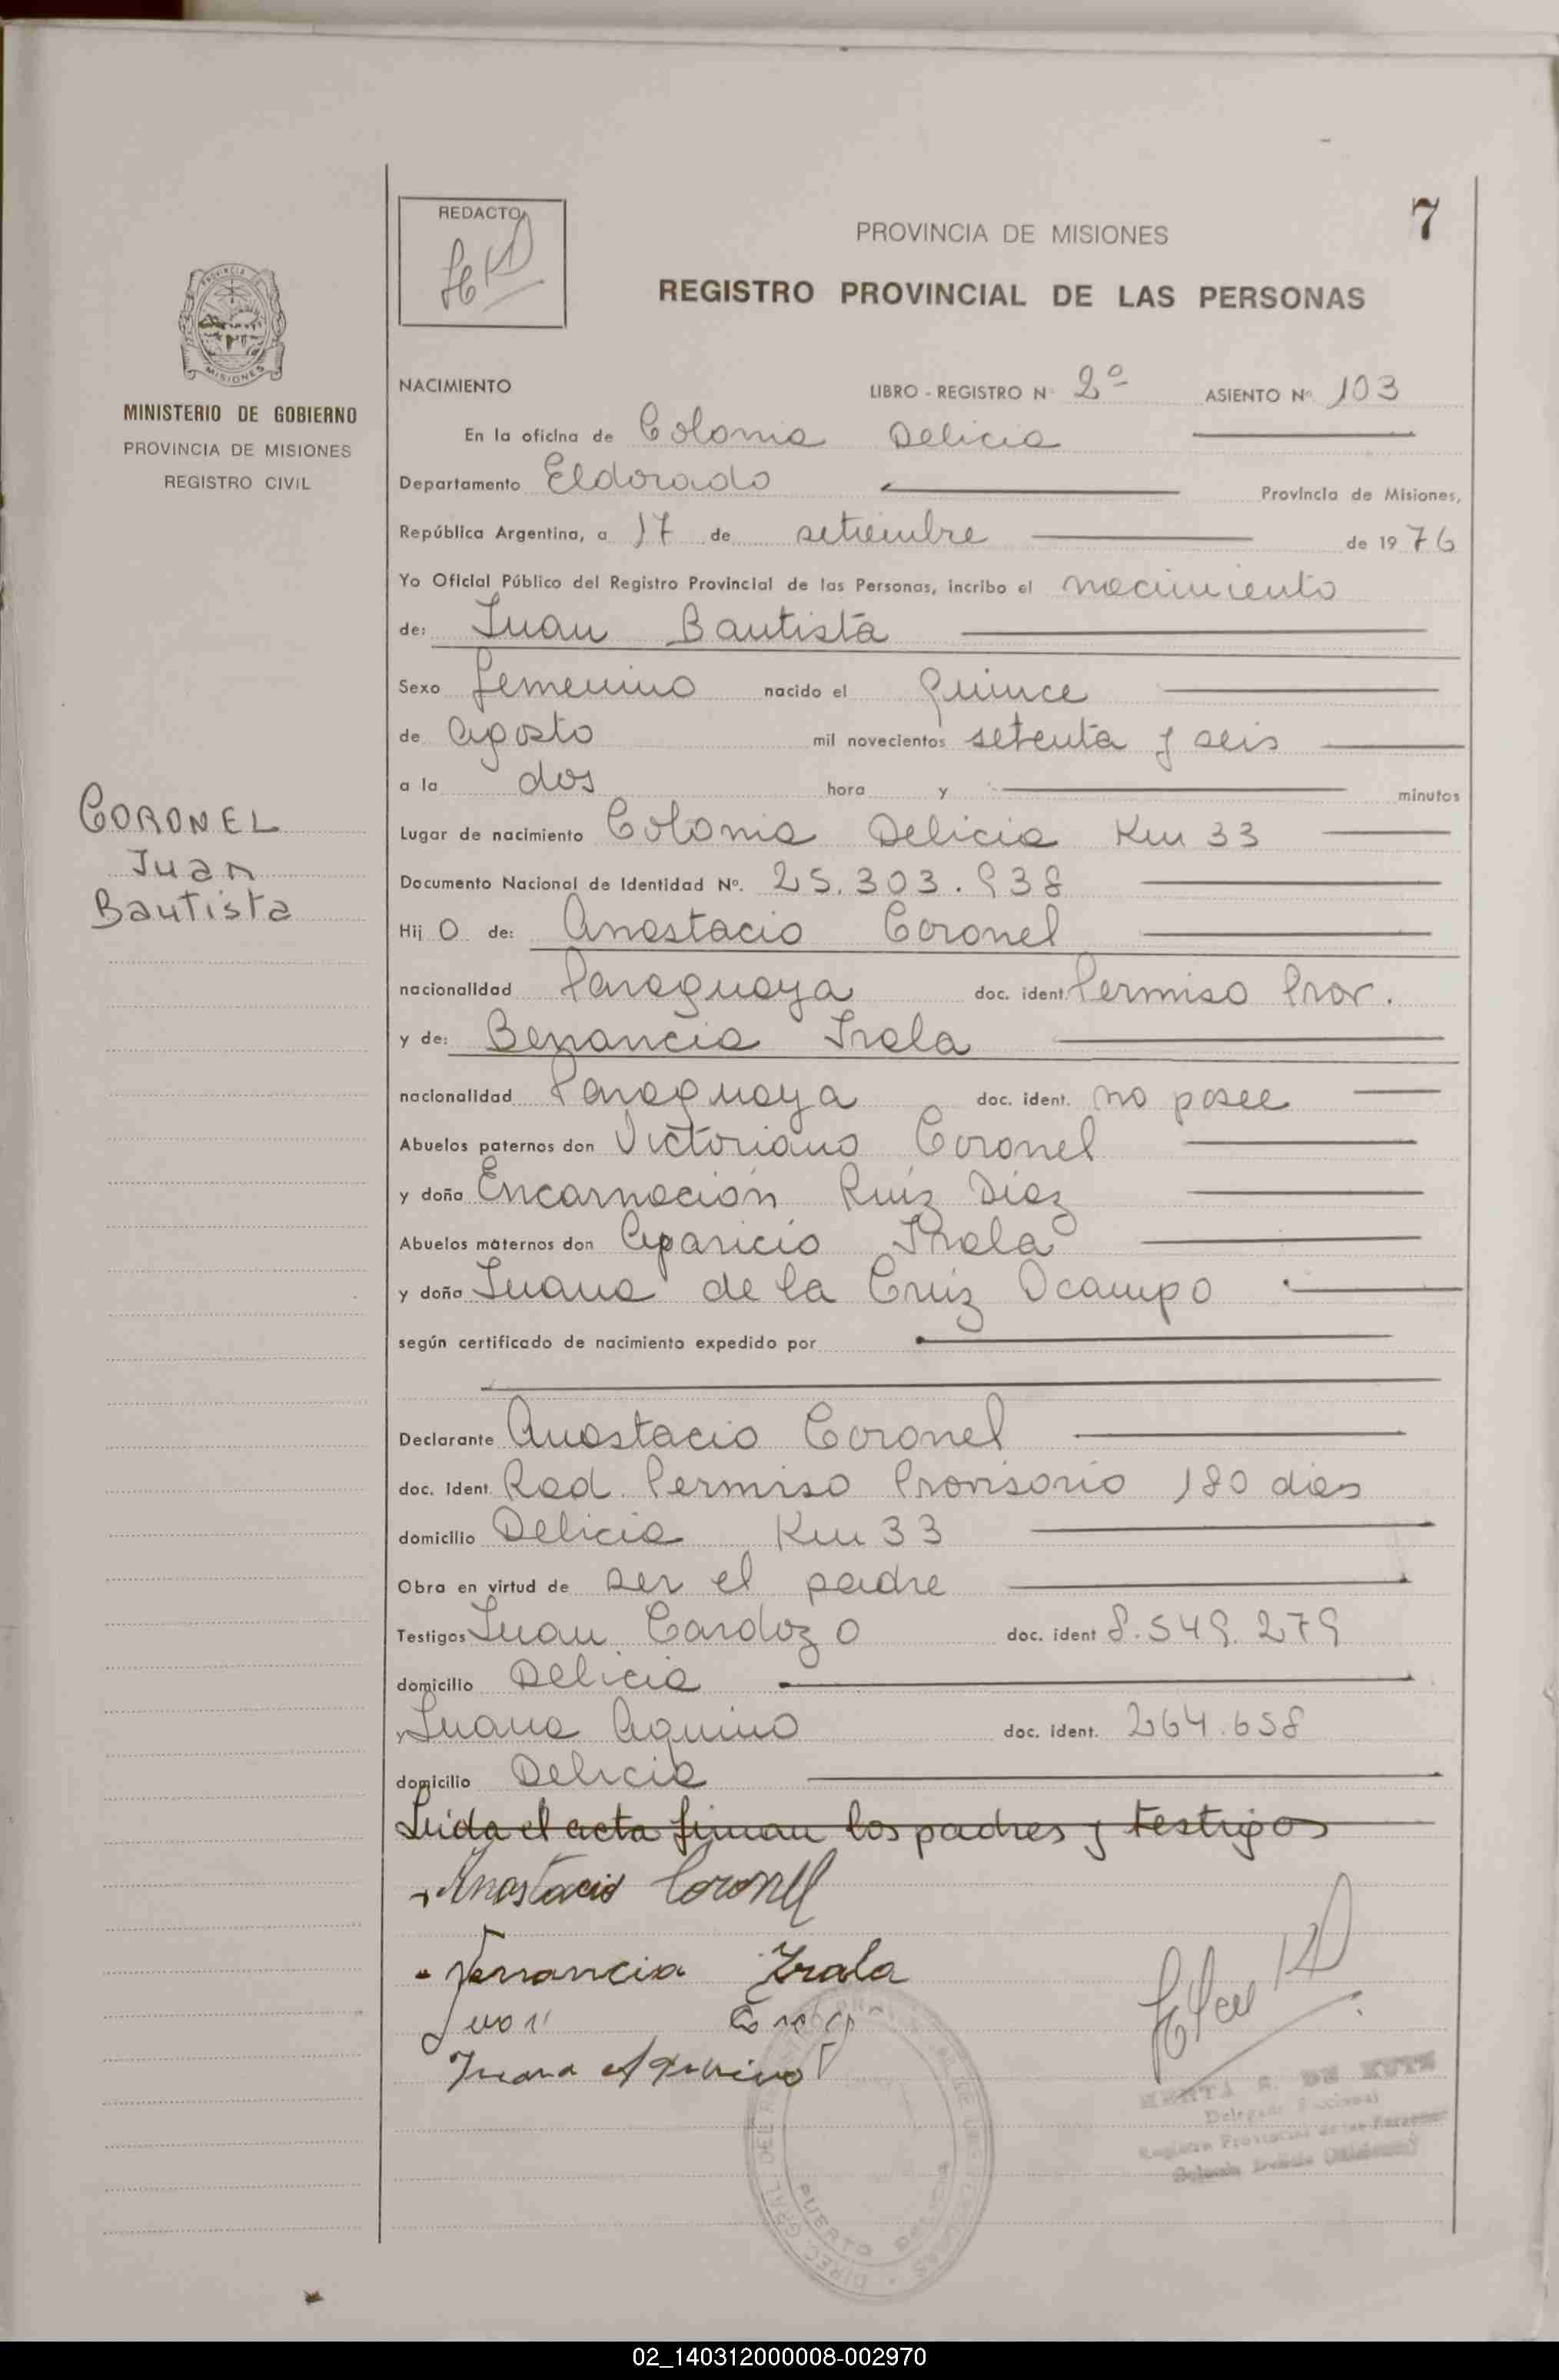 7
REDACTO
PROVINCIA DE MISIONES
REGISTRO PROVINCIAL DE LAS PERSONAS
PROVINCIA DE
MISIONES
MINISTERIO DE GOBIERNO
PROVINCIA DE MISIONES
REGISTRO CIVIL
CORONEL
Juan
Bautista
NACIMIENTO LIBRO - REGISTRO N° 2º ASIENTO Nº 103
En la oficina de Colonia Delicia
Departamento Eldorado Provincia de Misiones,
República Argentina, a 17 de setiembre de 1976
Yo Oficial Público del Registro Provincial de las Personas, incribo el nacimiento
de: Juan Bautista
Sexo femenino nacido el quince
de agosto mil novecientos setenta y seis
a la dos hora y minutos
Lugar de nacimiento Colonia Delicia Km 33
Documento Nacional de Identidad Nº. 25.303.938
Hij o de: Anastacio Coronel
nacionalidad Paraguaya doc. ident. Permiso Prov.
y de: Benancia Irala
nacionalidad Paraguaya doc. ident. no posee
Abuelos paternos don Victoriano Coronel
y doña Encarnación Ruíz Díaz
Abuelos maternos don Aparicio Irala
y doña Juana de la Cruz Ocampo
según certificado de nacimiento expedido por
Declarante Anastacio Coronel
doc. ident. Rad. Permiso Provisorio 180 días
domicilio Delicia Km 33
Obra en virtud de ser el padre
Testigos Juan Cardozo doc. ident 8.549.279
domicilio Delicia
Juana Aquino doc. ident. 264.658
domicilio Delicia
Leida el acta firman los padres y testigos
Anastacio Coronel
Venancia Irala
Juan
Juana Aquino
DE KUTZ
Delegada Seccional
Registro Provincial de las Personas
PUERTO DELICIA
02_140312000008-002970